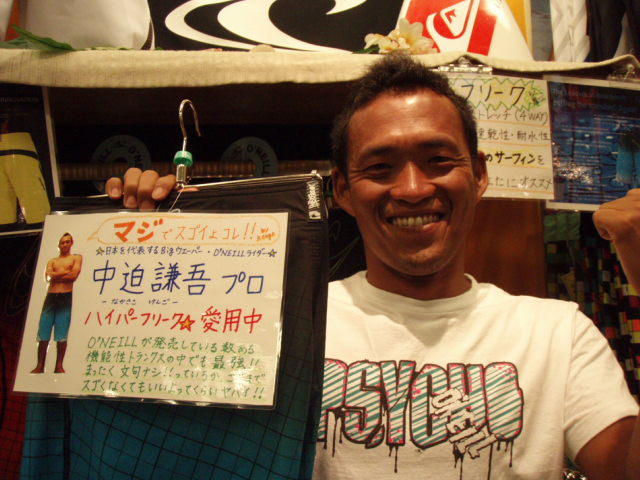 フリーク
トレッチ (4WAY)
速乾性・耐水性
のサーフィンを
たにオススメ
O'NEILL
O'NEILL
マジでスゴイよコレ!!
☆日本を代表するBigウエーバー・O'NEILLライダー☆
中迫謙吾 プロ
ーなかさこ けんごー
ハイパーフリーク☆愛用中
O'NEILLが発売している数ある
機能性トランクスの中でも最強!!
まったく文句ナシ!!っていうか
スゴくなくてもいいよってくらいヤバイ!!
PSYCHO
O'NEILL